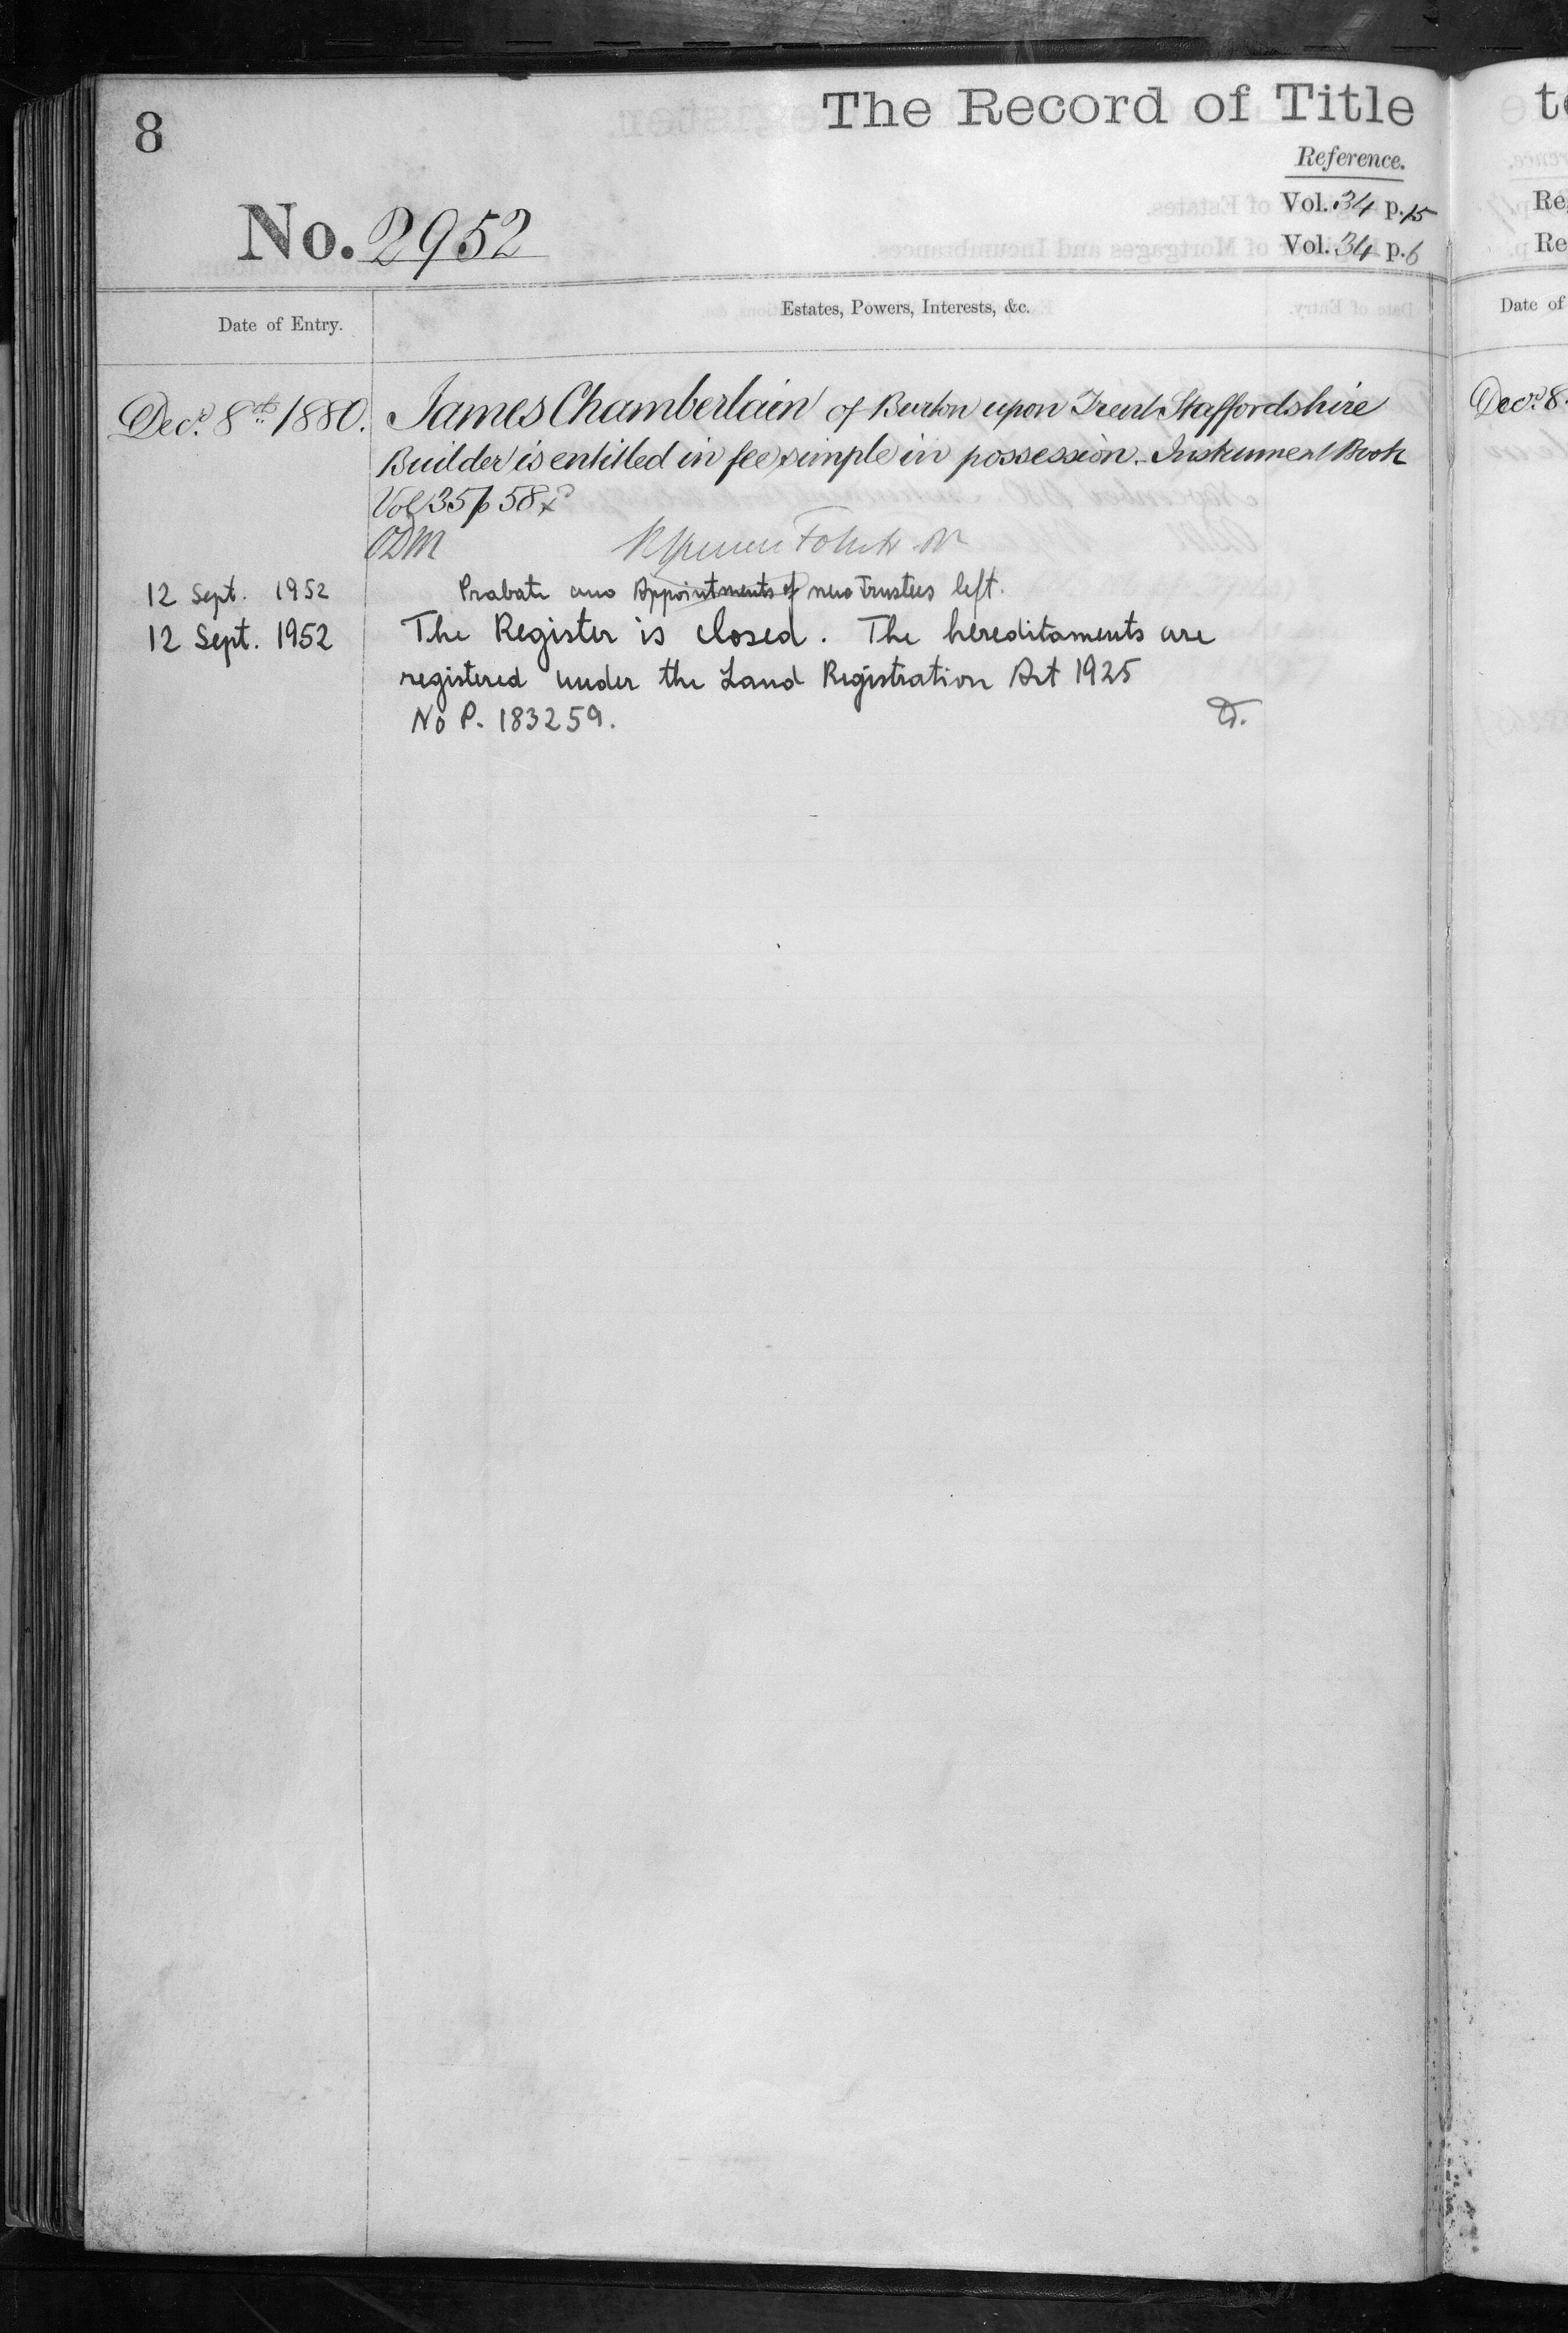 8
The Record of Title
Reference.
No. 2952
Vol. 34 p. 15
Vol. 34 p. 6
Date of Entry.
Estates, Powers, Interests, &c.
Decr. 8th 1880. James Chamberlain of Burton upon Trent Staffordshire
Builder is entitled in fee simple in possession. Instrument Book
Vol 35 p 58
ODM
12 Sept. 1952 Probate and Appointments of new Trustees left.
12 Sept. 1952 The Register is closed. The hereditaments are
registered under the Land Registration Act 1925
No P. 183259.
te
Re
Re
Date of
Decr. 8